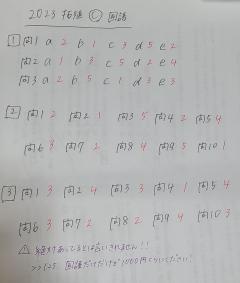 2023 拓殖 © 国語
1 問1 a 2 b 1 c 3 d 5 e 2
問2 a 1 b 3 c 5 d 2 e 4
問3 a 2 b 5 c 1 d 3 e 3
2 問1 2 問2 1 問3 5 問4 2 問5 4
問6 3 問7 2 問8 4 問9 5 問10 1
3 問1 3 問2 4 問3 3 問4 1 問5 4
問6 3 問7 2 問8 2 問9 4 問10 3
⚠ 絶対あってるとは言いきれません!!
>> 国語だけだけど1000円くらいください!